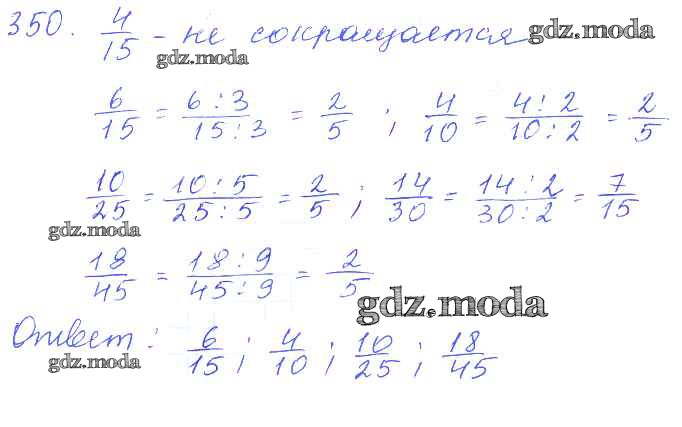 350. 4/15 - не сокращается gdz.moda
gdz.moda
6/15 = 6:3/15:3 = 2/5 ; 4/10 = 4:2/10:2 = 2/5
10/25 = 10:5/25:5 = 2/5 ; 14/30 = 14:2/30:2 = 7/15
gdz.moda
18/45 = 18:9/45:9 = 2/5
gdz.moda
Ответ: 6/15 ; 4/10 ; 10/25 ; 18/45
gdz.moda